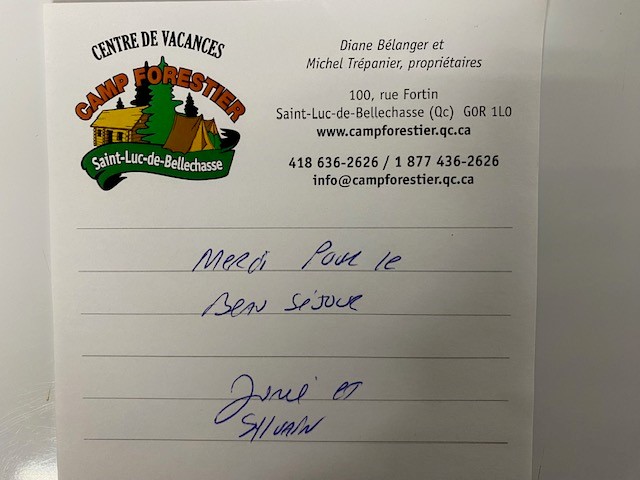 CENTRE DE VACANCES
CAMP FORESTIER
Saint-Luc-de-Bellechasse
Diane Bélanger et
Michel Trépanier, propriétaires
100, rue Fortin
Saint-Luc-de-Bellechasse (Qc) G0R 1L0
www.campforestier.qc.ca
418 636-2626 / 1 877 436-2626
info@campforestier.qc.ca
Merci Pour le
Beau séjour
et
Sylvain